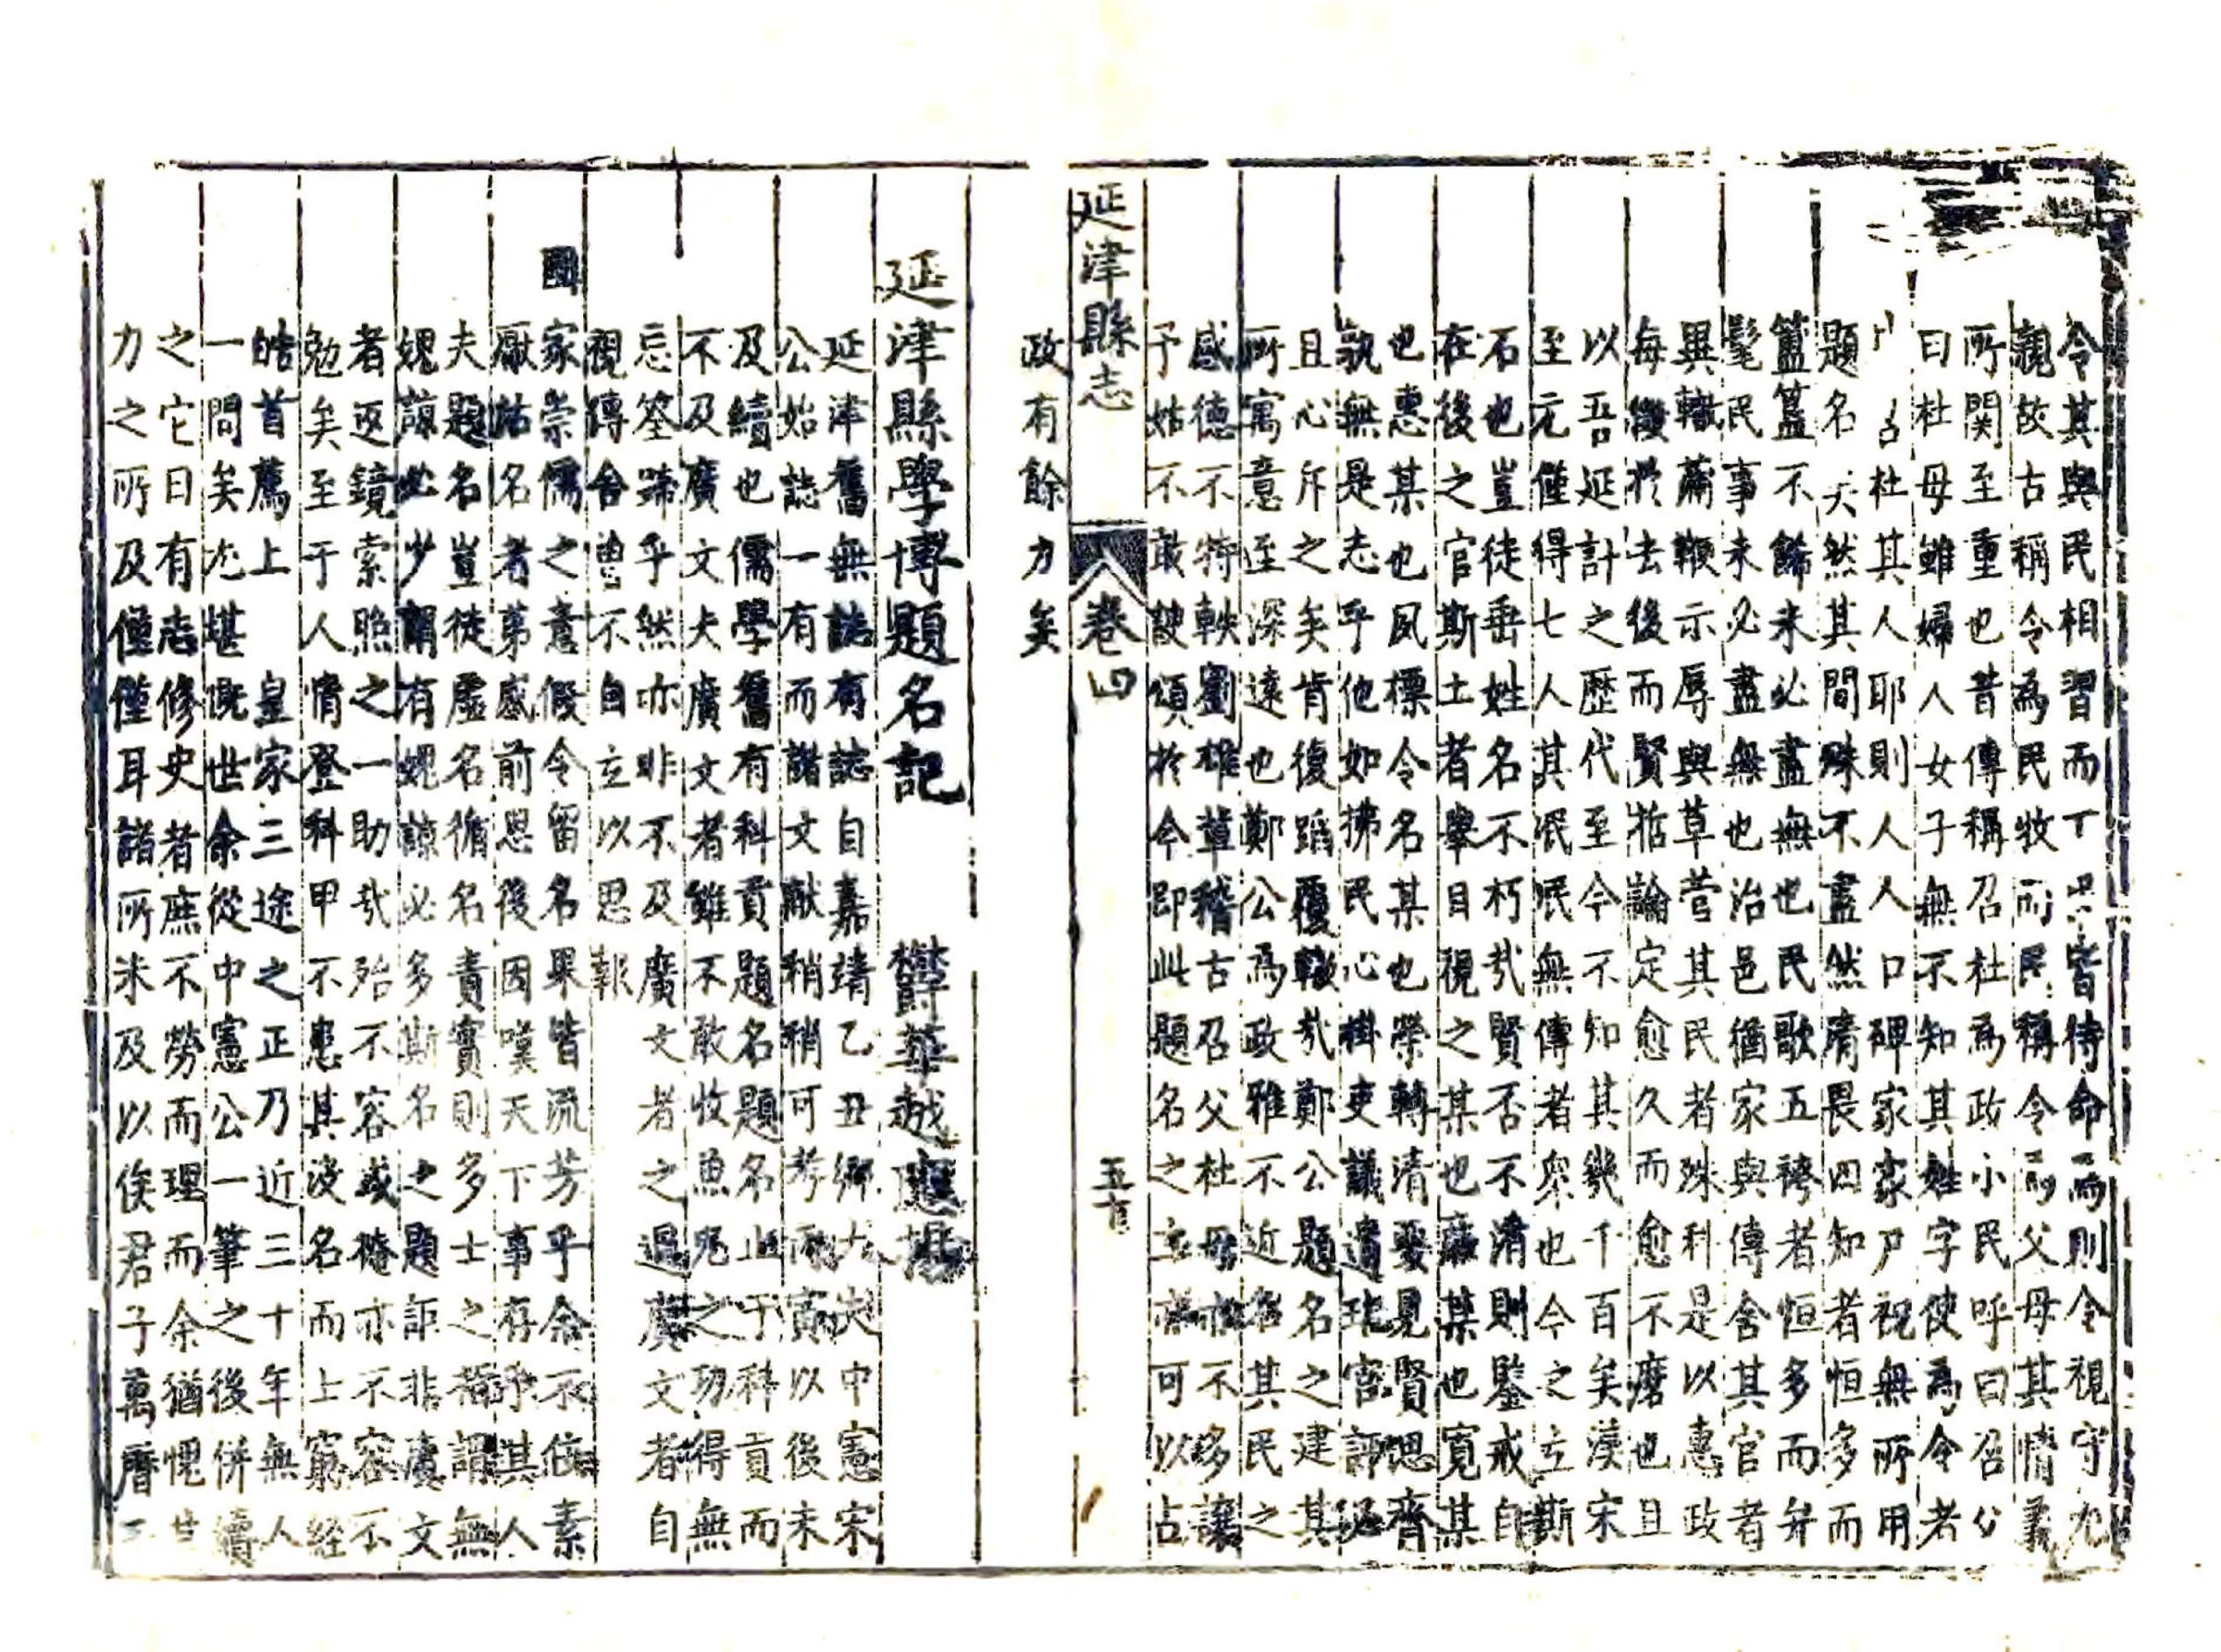 令其與民相習而丁 皆待命而則令視守尤
親故古稱令為民牧而民稱令而父母其情義
所関至重也昔傳稱召杜為政小民呼曰召父
曰杜母雖婦人女子無不知其姓字使為令者
召杜其人耶則人人口碑家家尸祝無所用
題名矣然其間殊不盡然脩畏四知者恒多而
簠簋不飾未必盡無也民歌五袴者恒多而弁
髦民事未必盡無也治邑猶家與傳舍其官者
異轍蒲鞭示辱與草菅其民者殊科是以惠政
每襏於去後而賢哲論定愈久而愈不磨也且
以吾延計之歷代至今不知其幾千百矣漢宋
至元僅得七人其泯泯無傳者衆也今之立斯
石也豈徒垂姓名不朽哉賢否不淆則鑒戒自
在後之官斯土者舉目視之某也廉某也寬某
也惠某也風標令名某也榮轉清要見賢思齊
孰無是志乎他如拂民心掛吏議遺玷官評
且心斥之矣肯復蹈覆轍哉鄭公題名之建其
所寓意至深遠也鄭公為政雅不近名其民之
感德不特軼劉雄草稽古召父杜母亦不多讓
予姑不敢諛頌於今即此題名之立亦可以占
延津縣志
卷四
五言
政有餘力矣
延津縣學博題名記
欝華越應揚
延津舊無誌有誌自嘉靖乙丑鄉大夫中憲宋
公始誌一有而諸文獻稍稍可考而寅以後未
及續也儒學舊有科貢題名題名止于科貢而
不及廣文夫廣文者雖不敢收魚兔之功得無
忘筌蹄乎然亦非不及廣文者之過廣文者自
視傳舍曾不自立以思報
國
家崇儒之意假令留名果皆流芳乎余不佞素
厭沽名者第感前思後因嘆天下事存乎其人
夫題名豈徒虛名循名責實則多士之 謂無
媿諒必少謂有媿諒必多斯名之題詎非廣文
者逆鏡索照之一助哉殆不容或 亦不容不
勉矣至于人情登科甲不患其沒名而上窮経
皓首薦上 皇家三途之正乃近三十年無人
一問矣尤堪慨世余從中憲公一筆之後併續
之它日有志修史者庶不勞而理而余猶愧
力之所及僅僅耳諸所未及以俟君子萬曆